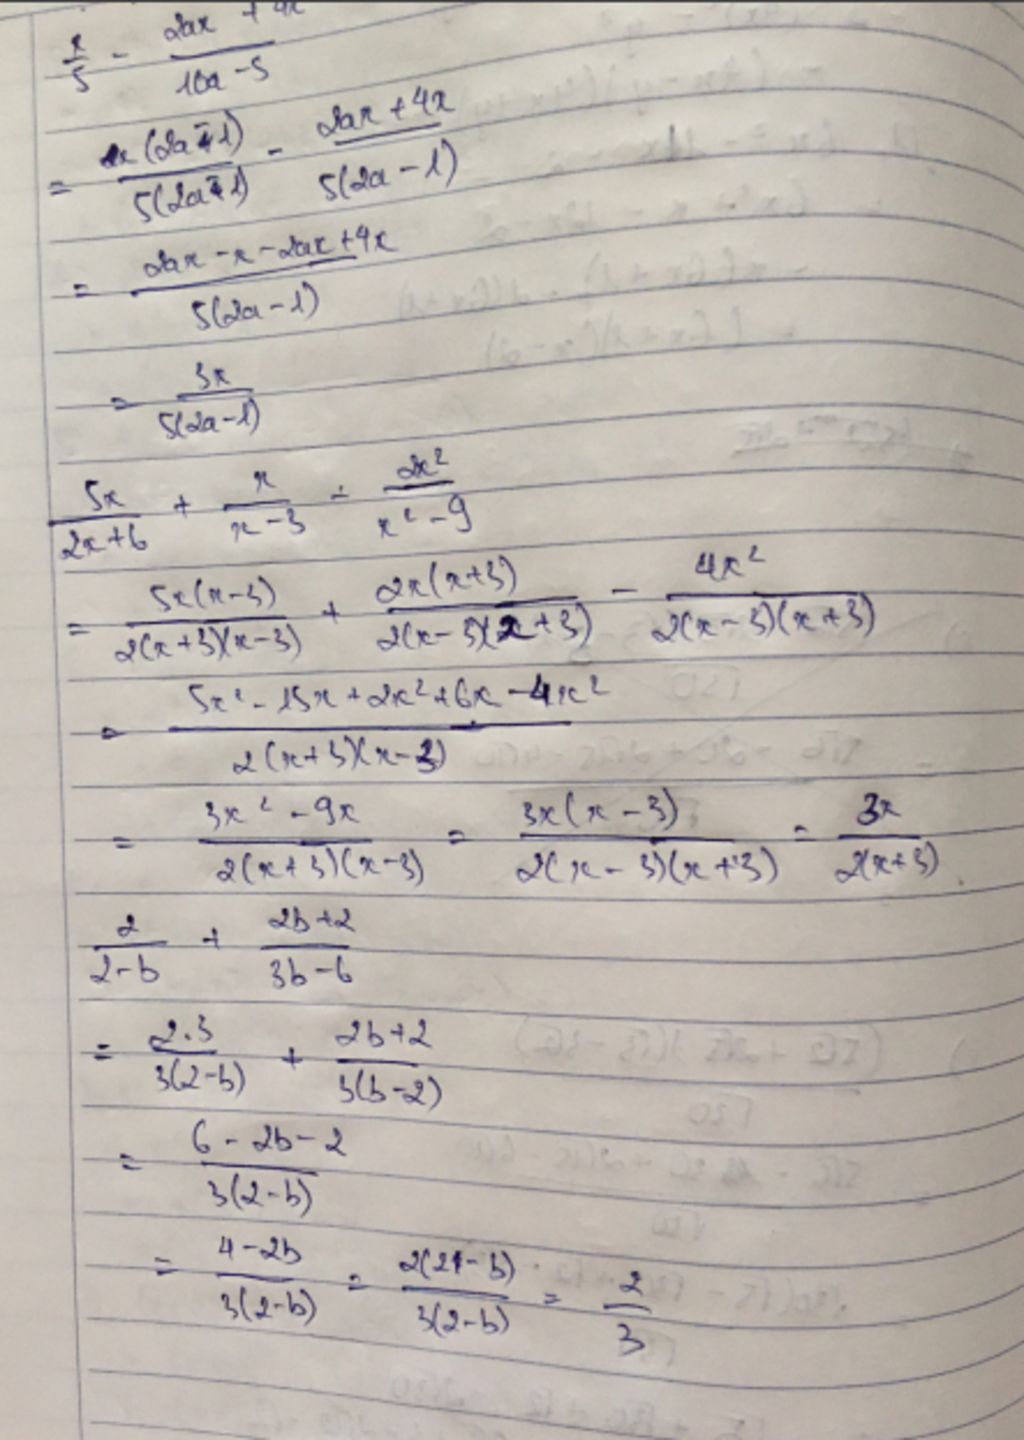 x/5 - (2ax + 4x)/(10a - 5)
= x(2a - 1)/5(2a - 1) - (2ax + 4x)/5(2a - 1)
= (2ax - x - 2ax + 4x)/5(2a - 1)
= 3x/5(2a - 1)
5x/(2x + 6) + x/(x - 3) - 2x²/(x² - 9)
= 5x(x - 3)/2(x + 3)(x - 3) + 2x(x + 3)/2(x - 3)(x + 3) - 4x²/2(x - 3)(x + 3)
= (5x² - 15x + 2x² + 6x - 4x²)/2(x + 3)(x - 3)
= (3x² - 9x)/2(x + 3)(x - 3) = 3x(x - 3)/2(x - 3)(x + 3) = 3x/2(x + 3)
2/(2 - b) + (2b + 2)/(3b - 6)
= 2.3/3(2 - b) + (2b + 2)/3(b - 2)
= (6 - 2b - 2)/3(2 - b)
= (4 - 2b)/3(2 - b) = 2(2 - b)/3(2 - b) = 2/3